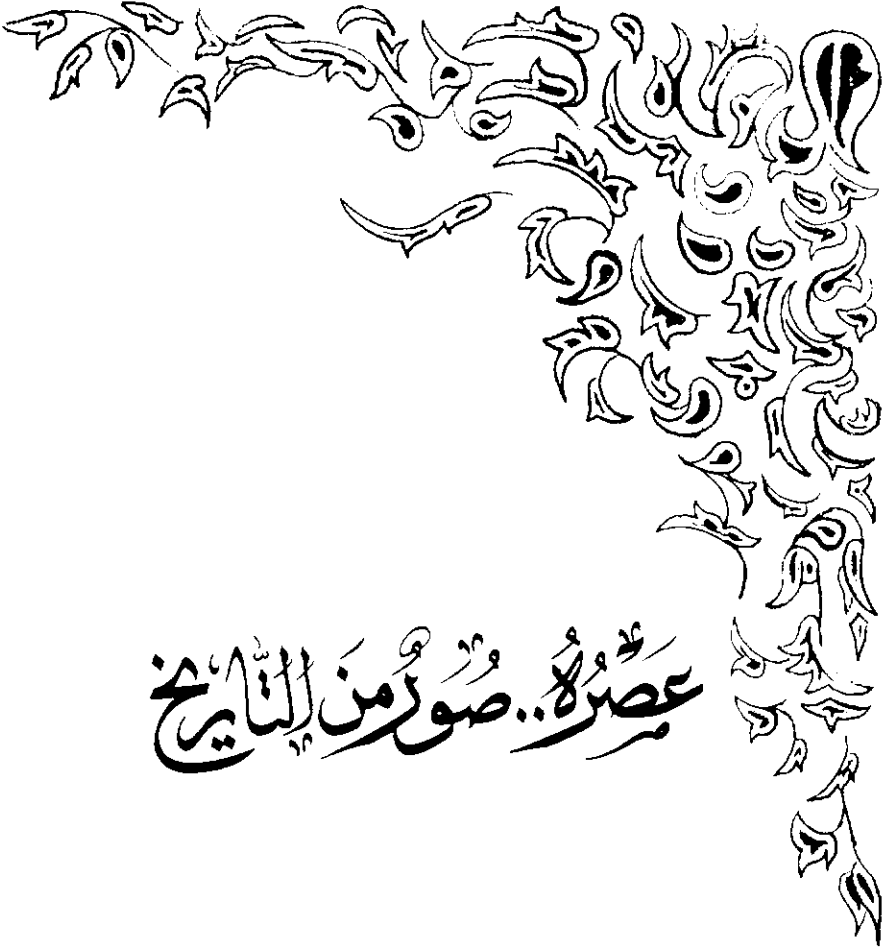 عَصْرُهُ.. صُوَرٌ مِنَ التَّارِيخِ